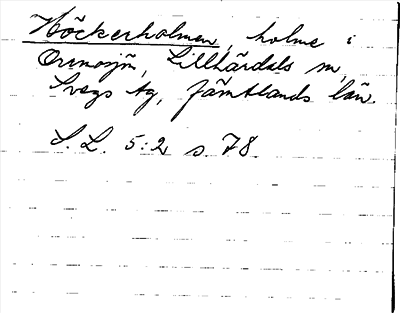 Höckerholmen, holme i
Ormosjön, Lillhärdals sn,
Svegs tg, Jämtlands län.
S.L. 5:2 s. 78.